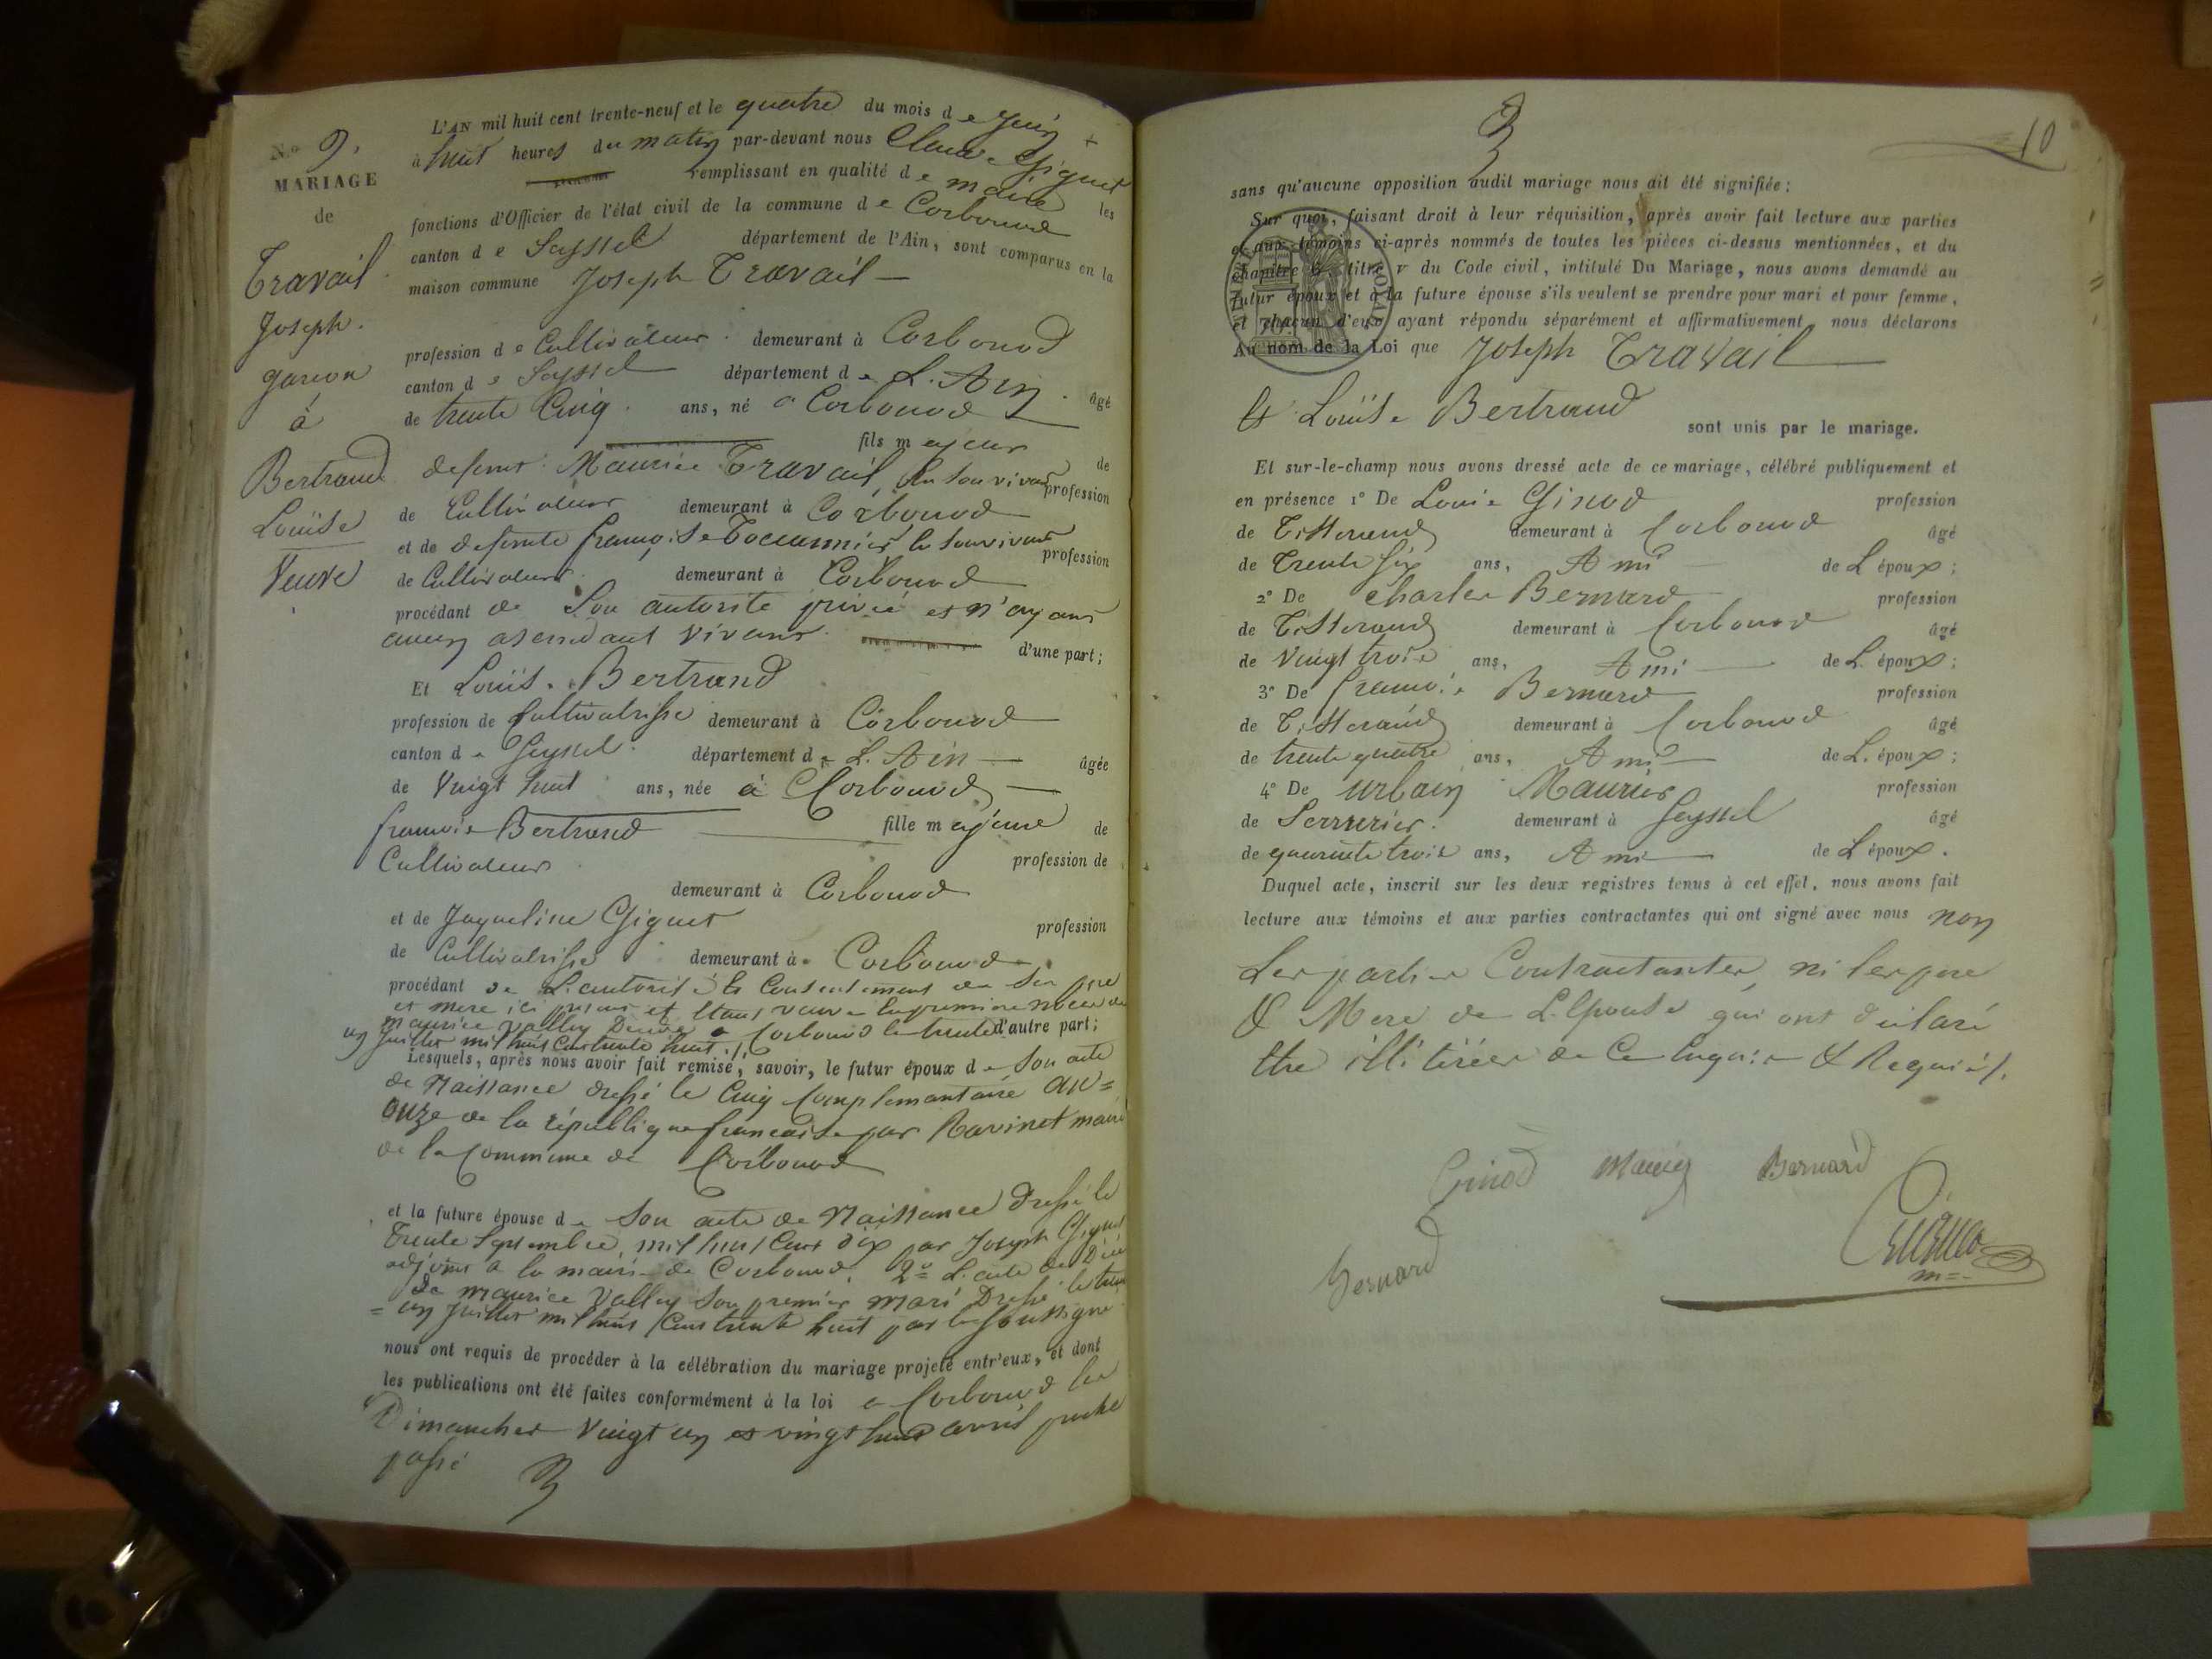 N.o 9.
MARIAGE
de
Travail
Joseph.
garcon
à
Bertrand
Louise
Veuve
L'AN mil huit cent trente-neuf et le quatre du mois de juin
à huit heures du matin par-devant nous Claude Giguet
remplissant en qualité de maire les
fonctions d'Officier de l'état civil de la commune de Corbonod
canton de Seyssel département de l'Ain, sont comparus en la
maison commune Joseph Travail
profession de Cultivateur demeurant à Corbonod
canton de Seyssel département de L'Ain âgé
de trente Cinq ans, né a Corbonod
fils majeur de
defunt Maurice Travail, En Son vivant profession
de Cultivateur demeurant à Corbonod
et de defunte françoise Toccannier En Son vivant profession
de Cultivateur demeurant à Corbonod
procédant de Son autorité privée et n'ayant
aucun asendant vivant. d'une part;
Et Louise Bertrand
profession de Cultivatrisse demeurant à Corbonod
canton de Seyssel département de L'Ain âgée
de Vingt huit ans, née à Corbonod
fille majeure de
francois Bertrand
Cultivateur profession de
demeurant à Corbonod
et de Jaqueline Giguet profession
de Cultivatrisse demeurant à Corbonod
procédant de L'autorité & Consentement de Ses pere
et mere ici present et Etant veuve En premiere noces de
maurice Vallin Décédé a Corbonod le trente d'autre part;
un Juillet mil huit Cent trente huit
Lesquels, après nous avoir fait remise, savoir, le futur époux de Son acte
de Naissance dressé le Cinq Complemantaire an=
onze de la république francaise par Ravinet maire
de la Commune de Corbonod
et la future épouse de Son acte de Naissance Dressé le
Trente Septembre mil huit Cent dix par Joseph Giguet
adjoint a la mairie de Corbonod. 2º L'acte de Décé
de maurice Vallin Son premier mari Dressé le trente
= un Juillet mil huit Cent trente huit par le Soussigné
nous ont requis de procéder à la célébration du mariage projeté entr'eux, et dont
les publications ont été faites conformément à la loi a Corbonod les
Dimanches Vingt un et vingt huit avril proche
passé
10
sans qu'aucune opposition audit mariage nous ait été signifiée;
Sur quoi, faisant droit à leur réquisition, après avoir fait lecture aux parties
et aux témoins ci-après nommés de toutes les pièces ci-dessus mentionnées, et du
chapitre 6, titre V du Code civil, intitulé Du Mariage, nous avons demandé au
futur époux et à la future épouse s'ils veulent se prendre pour mari et pour femme,
et chacun d'eux ayant répondu séparément et affirmativement nous déclarons
Au nom de la Loi que Joseph Travail
& Louise Bertrand
sont unis par le mariage.
Et sur-le-champ nous avons dressé acte de ce mariage, célébré publiquement et
en présence 1º De Louis Ginod profession
de Tisserand demeurant à Corbonod âgé
de Trente Six ans, Ami de L'époux;
2º De Charles Bernard profession
de Tisserand demeurant à Corbonod âgé
de Vingt trois ans, Ami de L'époux;
3º De francois Bernard profession
de Tisserand demeurant à Corbonod âgé
de trente quatre ans, Ami de L'époux;
4º De urbain Maurier profession
de Serrurier demeurant à Seyssel âgé
de quarente trois ans, Ami de L'époux.
Duquel acte, inscrit sur les deux registres tenus à cet effet, nous avons fait
lecture aux témoins et aux parties contractantes qui ont signé avec nous non
Les parties Contractantes, ni les pere
& Mere de L'Epouse qui ont déclaré
Etre illitérées de Ce Enquis & Requis.
Ginod Bernard
Bernard